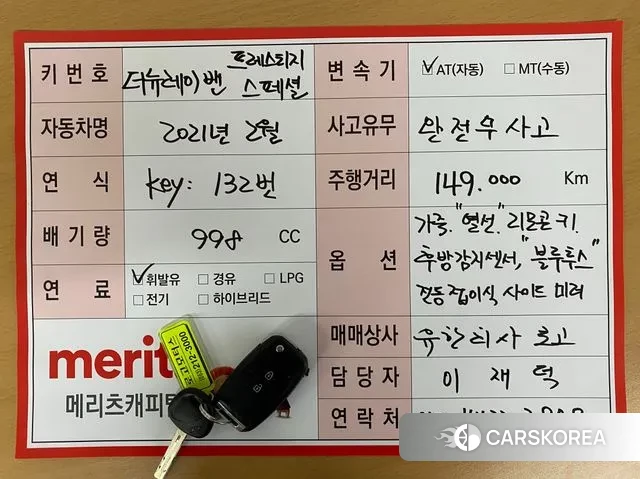 키번호 더뉴레이밴 프레스티지 스페셜
변속기 ☑AT(자동) □MT(수동)
자동차명 2021년 2월
사고유무 완전무사고
연식 key: 132번
주행거리 149.000 Km
배기량 998 CC
옵션 가죽."열선". 리모콘키.
후방감지센서, "블루투스"
전동접이식 사이드미러
연료 ☑휘발유 □경유 □LPG
□전기 □하이브리드
매매상사 유한회사 로고
담당자 이재덕
연락처
merit
메리츠캐피탈
212-3000
CARSKOREA